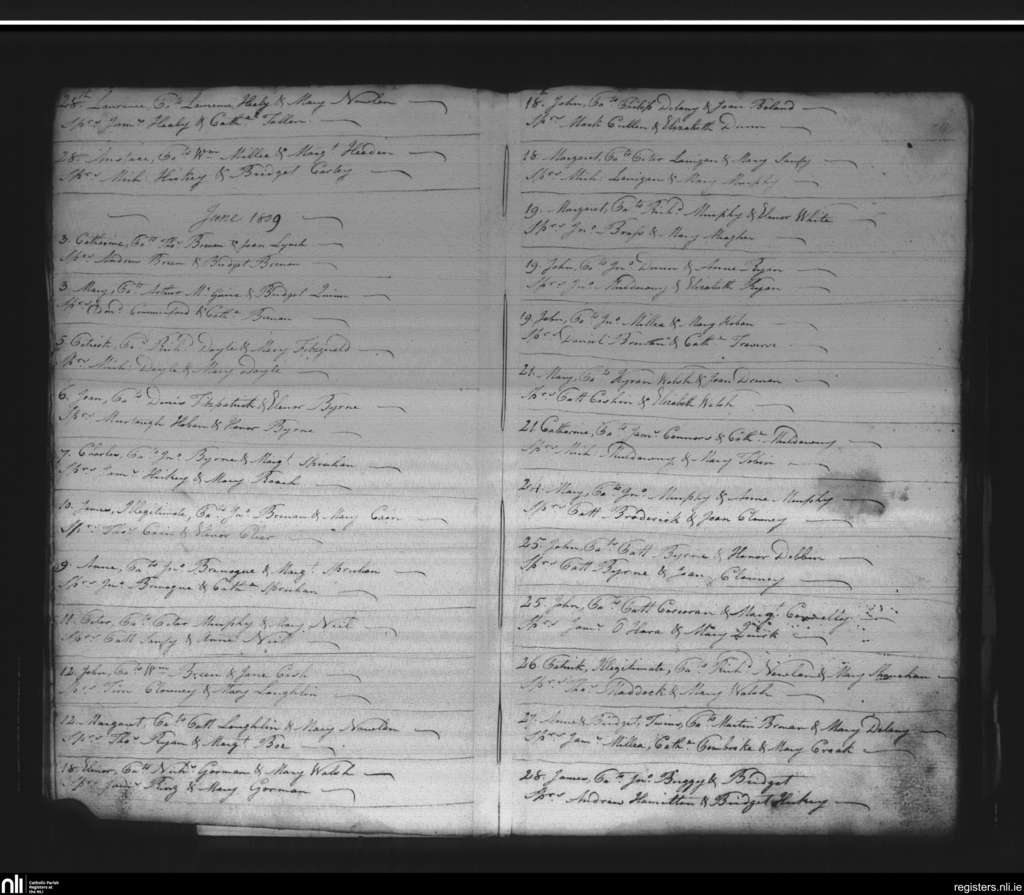 28th Laurence, Pa.ts Laurence Healy & Mary Nowlan
Sp.rs Jam.s Healy & Cath.n Fallon
28. Anstace, Pa.ts Wm Millea & Marg.t Headen
Sp.rs Mich. Hickey & Bridget Corley
June 1809
3. Catherine, Pa.ts Tho.s Brenan & Joan Lynch
Sp.rs Andrew Breen & Bridget Brenan
3. Mary, Pa.ts Arthur McGuire & Bridget Quinn
Sp.rs Edm.d Commerford & Cath.n Brenan
5. Patrick, Pa.ts Rich.d Doyle & Mary Fitzgerald
Sp.rs Mich. Doyle & Mary Doyle
6. Joan, Pa.ts Denis Fitzpatrick & Elenor Byrne
Sp.rs Murtaugh Hoban & Honor Byrne
7. Charles, Pa.ts Jn.o Byrne & Marg.t
Sp.rs Jam.s Hickey & Mary Roach
10. James, Illegitimate, Pa.ts Jn.o Brenan & Mary Cain
Sp.rs Tho.s Cain & Elenor
9. Anne, Pa.ts Jn.o & Marg.t
Sp.rs Jn.o & Cath.n
11. Peter, Pa.ts Peter Murphy & Mary
Sp.rs Patt & Anne
12. John, Pa.ts Wm Breen & Jane Cash
Sp.rs Tim Clowney & Mary Loughlin
12. Margaret, Pa.ts Patt Loughlin & Mary Nowlan
Sp.rs Tho.s Ryan & Marg.t Boe
18. Elenor, Pa.ts Nich.s Gorman & Mary Walsh
Sp.rs Jam.s King & Mary Gorman
18. John, Pa.ts Philip Delany & Joan Boland
Sp.rs Mark Cullen & Elizabeth Dunn
18. Margaret, Pa.ts Peter Lanigan & Mary
Sp.rs Mich. Lanigan & Mary Murphy
19. Margaret, Pa.ts Rich.d Murphy & Elenor White
Sp.rs Jn.o & Mary Meagher
19. John, Pa.ts Jn.o Dunn & Anne Ryan
Sp.rs Jn.o Muldowny & Elizabeth Ryan
19. John, Pa.ts Jn.o Millea & Mary Hoban
Sp.rs Daniel & Cath.n
21. Mary, Pa.ts Kyran Walsh & Joan
Sp.rs Patt Cashin & Elizabeth Walsh
21. Catherine, Pa.ts Jam.s Connors & Cath.n Muldowny
Sp.rs Mich. Muldowny & Mary Tobin
24. Mary, Pa.ts Jn.o Murphy & Anne Murphy
Sp.rs Patt Broderick & Joan Clowney
25. John, Pa.ts Patt Byrne & Honor
Sp.rs Patt Byrne & Joan Clowney
25. John, Pa.ts Patt Corcoran & Marg.t Connelly
Sp.rs Jam.s O Hara & Mary Quirk
26. Patrick, Illegitimate, Pa.ts Rich.d & Mary Shanahan
Sp.rs Tho.s Maddock & Mary Walsh
27. Anne & Bridget, Twins, Pa.ts Martin Brenan & Mary Delany
Sp.rs Jam.s Millea, Cath.n Pembroke & Mary Croak
28. James, Pa.ts Jn.o Buggy & Bridget
Sp.rs Andrew Hamilton & Bridget Hickey
nli
Catholic Parish
Registers at
the NLI
registers.nli.ie